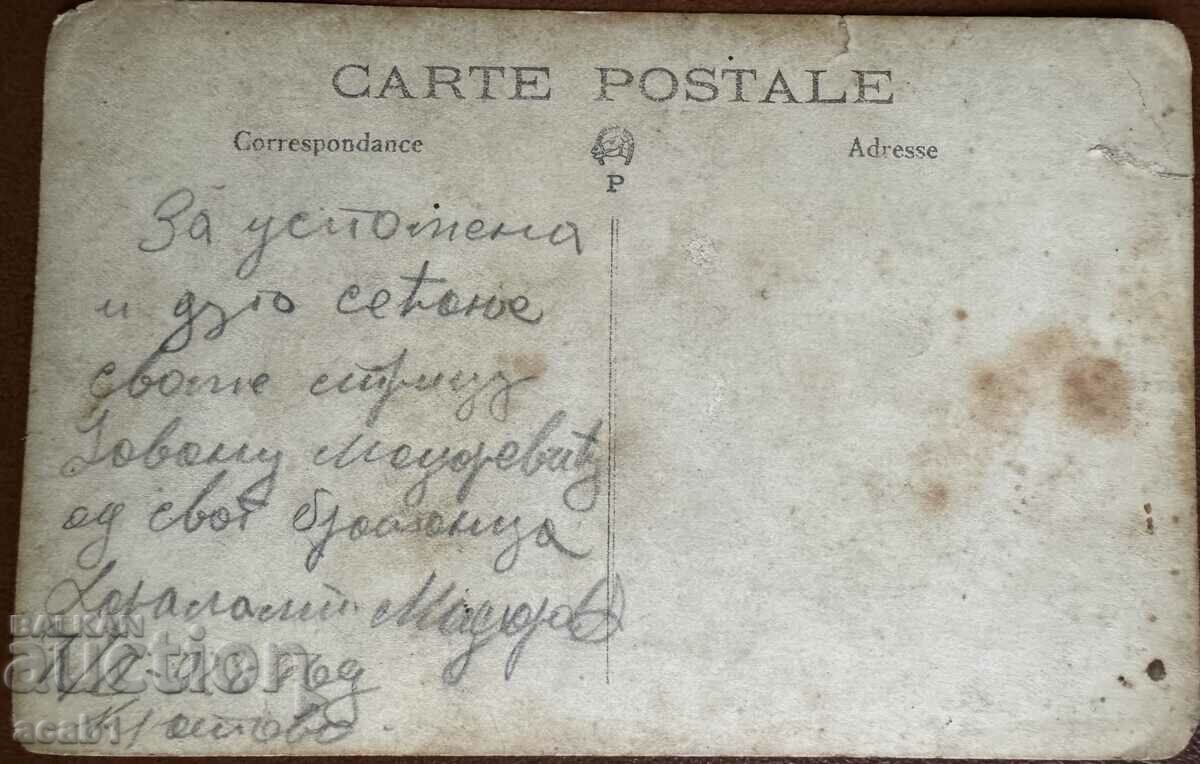 CARTE POSTALE
Correspondance
Adresse
P
За успомена
и дуго сећање
своме стрицу
Јовану
од свог братанца
Харалампи
Кратово
BALKAN
auction
acab1